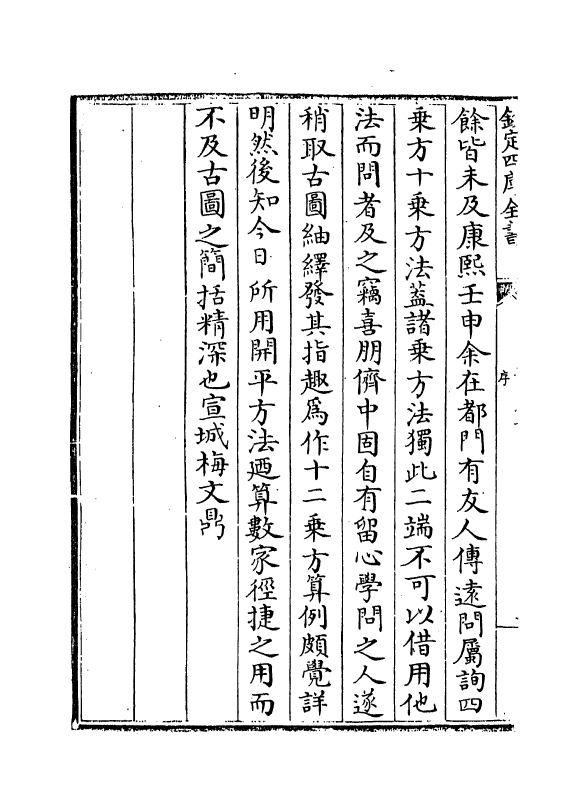 欽定四庫全書
序
餘皆未及康熙壬申余在都門有友人傳遠問屬詢四
乗方十乗方法葢諸乗方法獨此二端不可以借用他
法而問者及之竊喜朋儕中固自有留心學問之人遂
稍取古圖紬繹發其指趣爲作十二乗方算例頗覺詳
明然後知今日所用開平方法廼算數家徑捷之用而
不及古圖之簡括精深也宣城梅文鼎